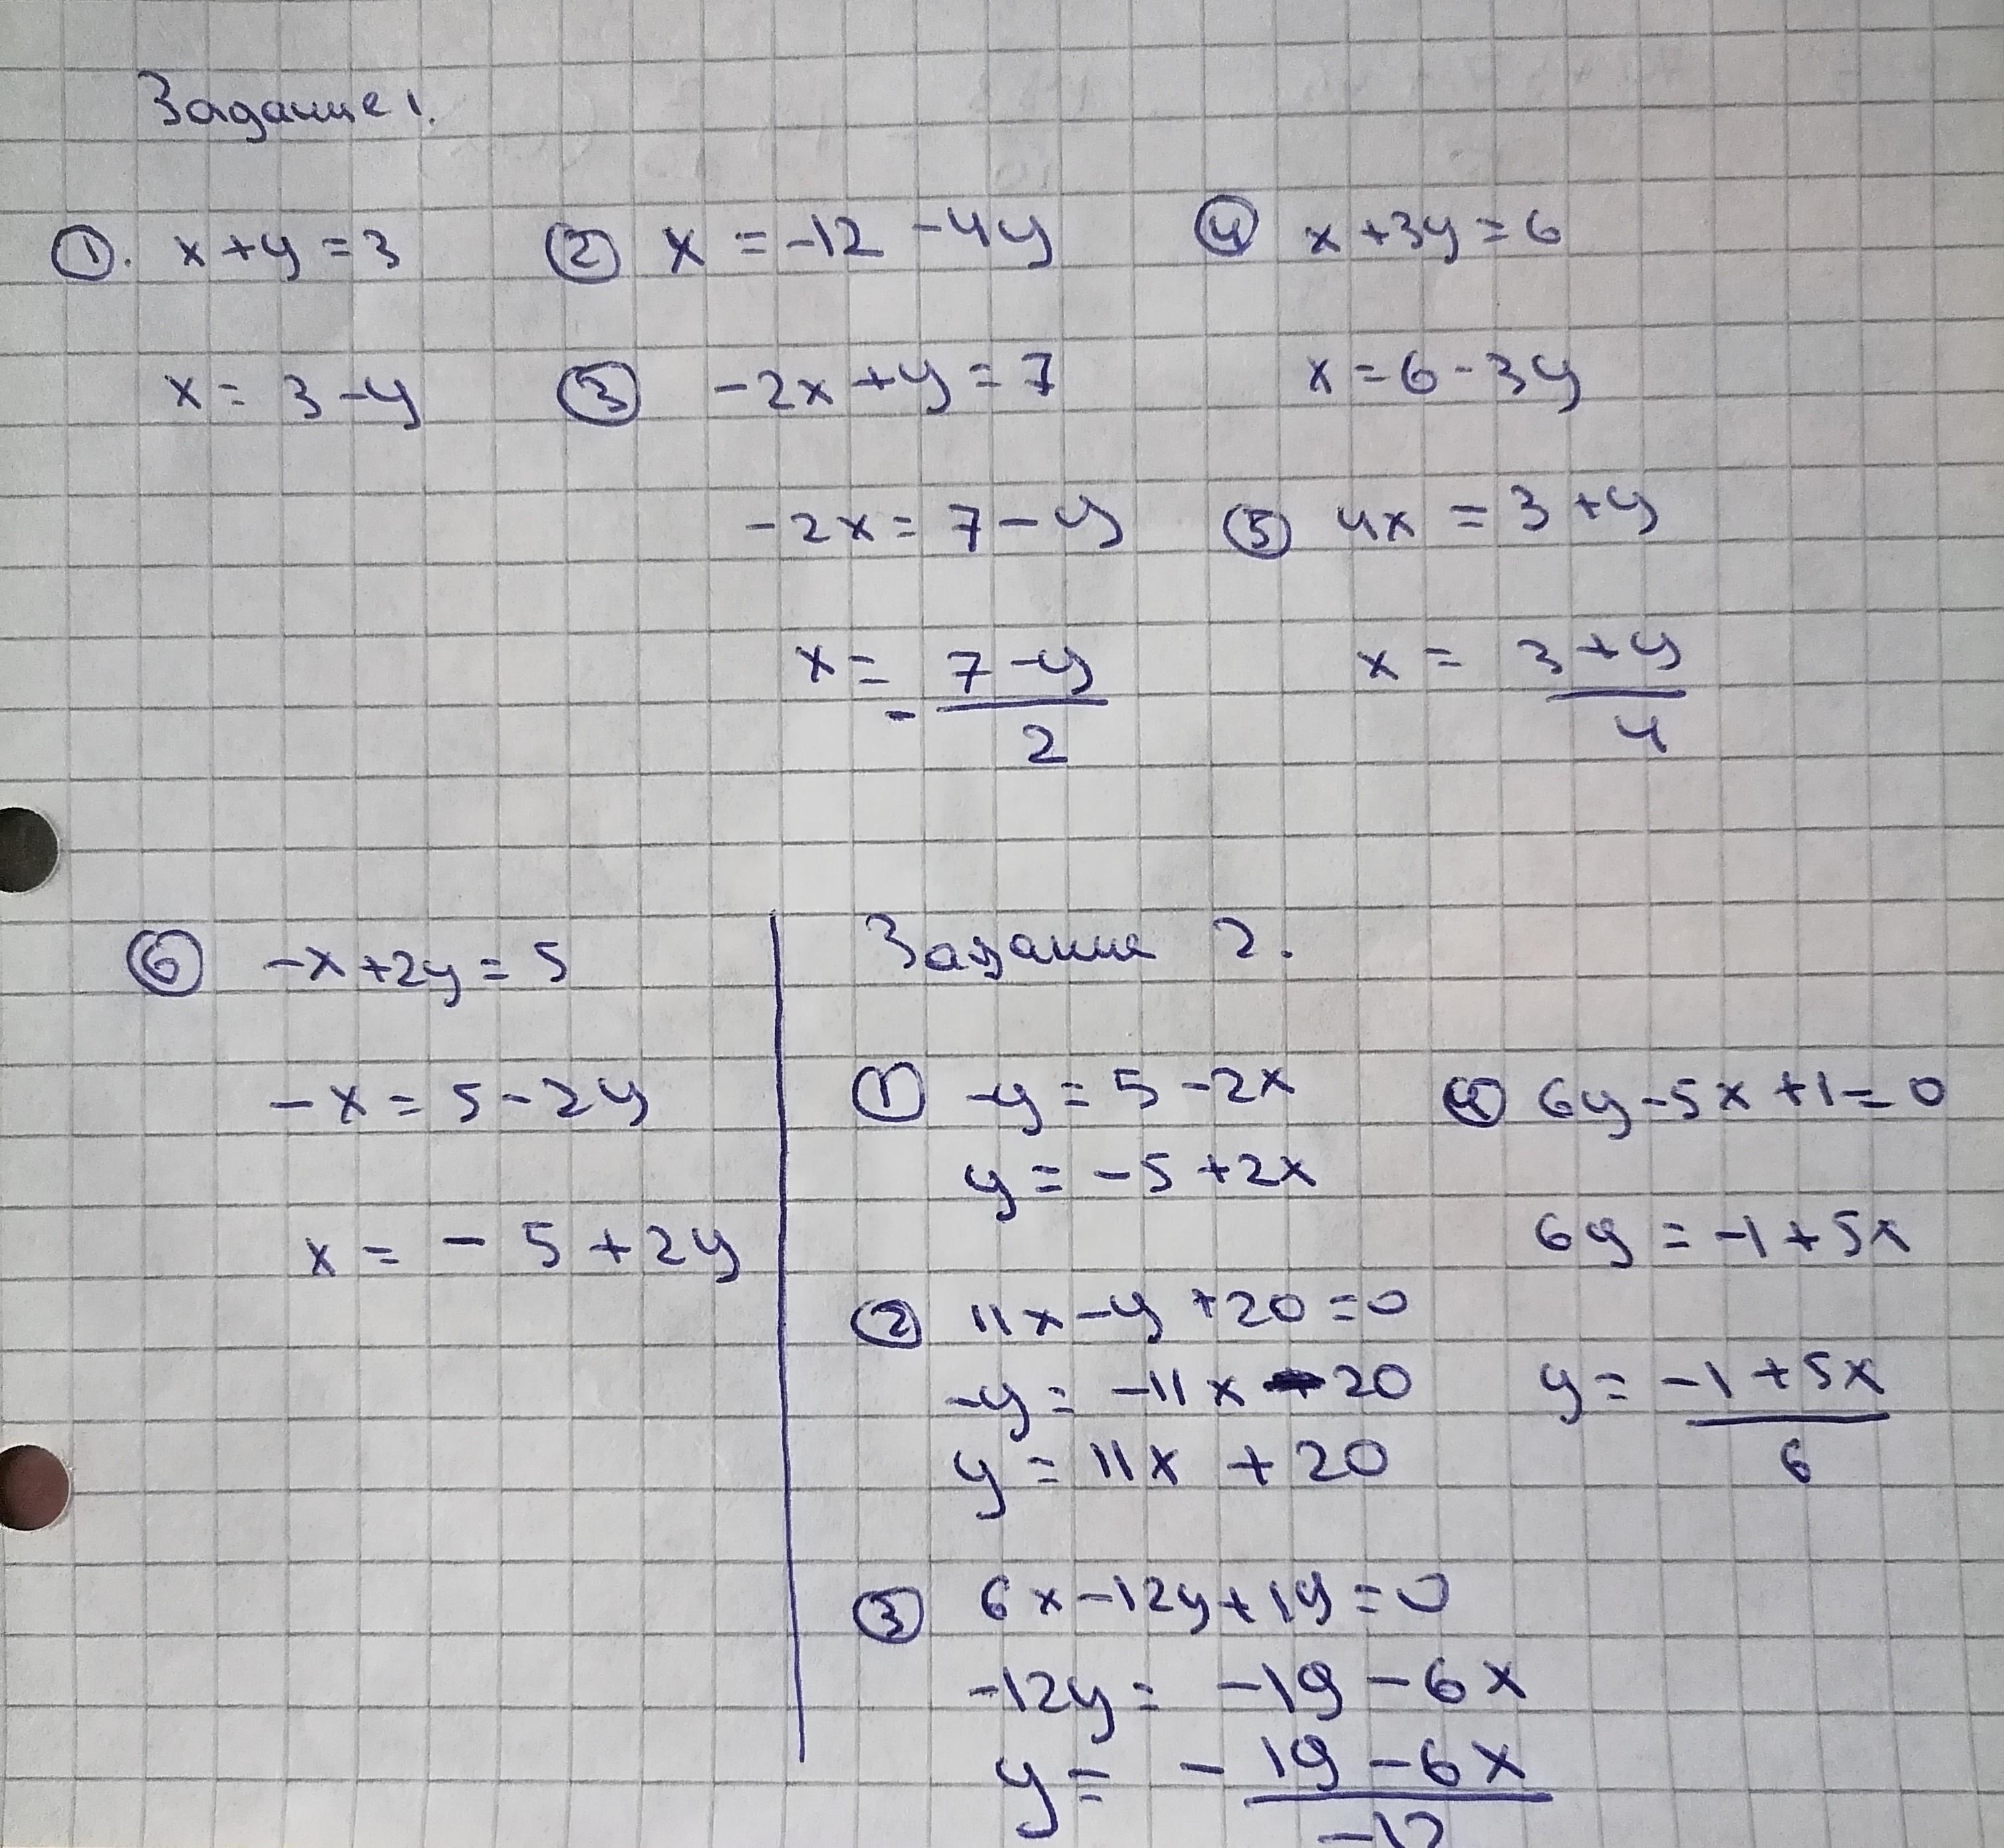 Задание 1.
①. x+y=3
x = 3-y
② x = -12 -4y
③ -2x+y=7
-2x = 7-y
x = - 7-y / 2
④ x+3y=6
x=6-3y
⑤ 4x = 3+y
x = 3+y / 4
⑥ -x+2y=5
-x=5-2y
x = -5+2y
Задание 2.
① -y=5-2x
y=-5+2x
② 11x-y+20=0
-y= -11x - 20
y = 11x + 20
③ 6x-12y+19=0
-12y= -19-6x
y = -19-6x / -12
④ 6y-5x+1=0
6y=-1+5x
y= -1+5x / 6